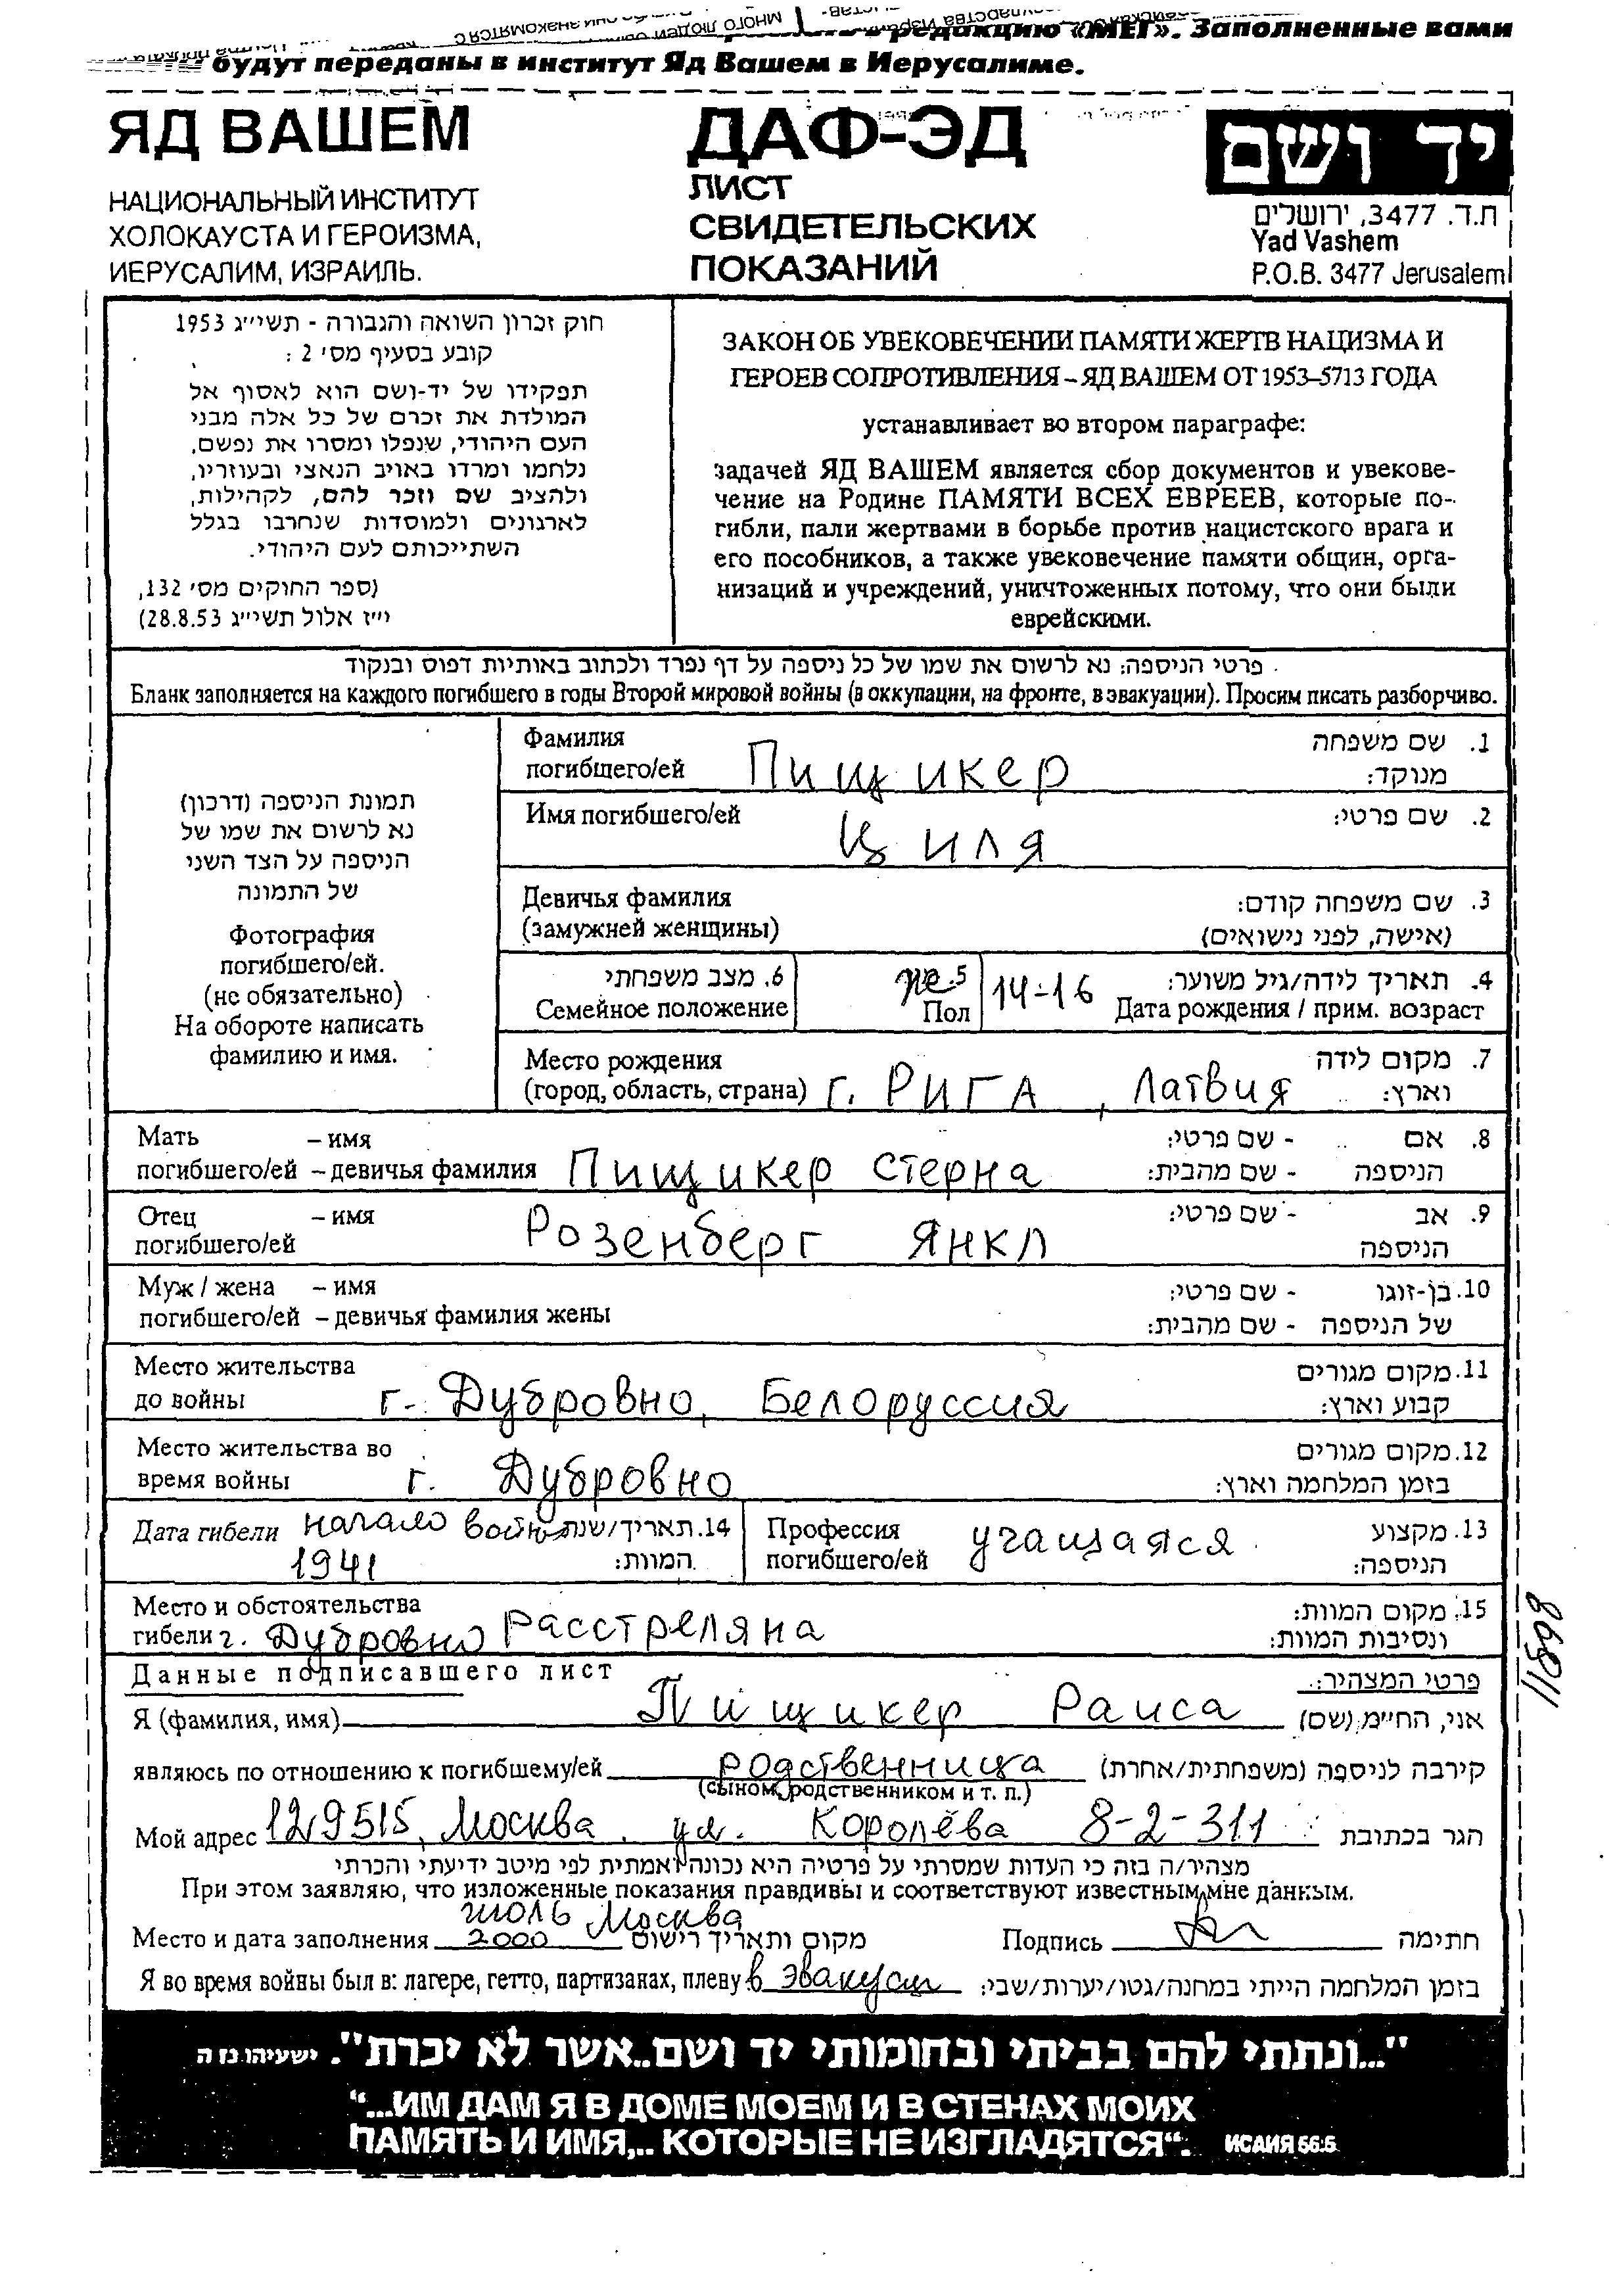 редакцию «МЕГ». Заполненные вами
будут переданы в институт Яд Вашем в Иерусалиме.
ЯД ВАШЕМ
НАЦИОНАЛЬНЫЙ ИНСТИТУТ
ХОЛОКАУСТА И ГЕРОИЗМА,
ИЕРУСАЛИМ, ИЗРАИЛЬ.
ДАФ-ЭД
ЛИСТ
СВИДЕТЕЛЬСКИХ
ПОКАЗАНИЙ
יד ושם
ת.ד. 3477, ירושלים
Yad Vashem
P.O.B. 3477 Jerusalem
חוק זכרון השואה והגבורה - תשי״ג 1953
קובע בסעיף מס׳ 2 :
תפקידו של יד-ושם הוא לאסוף אל
המולדת את זכרם של כל אלה מבני
העם היהודי, שנפלו ומסרו את נפשם,
נלחמו ומרדו באויב הנאצי ובעוזריו,
ולהציב שם וזכר להם, לקהילות,
לארגונים ולמוסדות שנחרבו בגלל
השתייכותם לעם היהודי.
(ספר החוקים מס׳ 132,
י״ז אלול תשי״ג 28.8.53)
ЗАКОН ОБ УВЕКОВЕЧЕНИИ ПАМЯТИ ЖЕРТВ НАЦИЗМА И
ГЕРОЕВ СОПРОТИВЛЕНИЯ – ЯД ВАШЕМ ОТ 1953–5713 ГОДА
устанавливает во втором параграфе:
задачей ЯД ВАШЕМ является сбор документов и увекове-
чение на Родине ПАМЯТИ ВСЕХ ЕВРЕЕВ, которые по-
гибли, пали жертвами в борьбе против нацистского врага и
его пособников, а также увековечение памяти общин, орга-
низаций и учреждений, уничтоженных потому, что они были
еврейскими.
פרטי הניספה: נא לרשום את שמו של כל ניספה על דף נפרד ולכתוב באותיות דפוס ובנקוד
Бланк заполняется на каждого погибшего в годы Второй мировой войны (в оккупации, на фронте, в эвакуации). Просим писать разборчиво.
תמונת הניספה (דרכון)
נא לרשום את שמו של
הניספה על הצד השני
של התמונה
Фотография
погибшего/ей.
(не обязательно)
На обороте написать
фамилию и имя.
Фамилия 1. שם משפחה
погибшего/ей Пищикер מנוקד:
Имя погибшего/ей 2. שם פרטי:
Циля
Девичья фамилия 3. שם משפחה קודם:
(замужней женщины) (אישה, לפני נישואים)
6. מצב משפחתי 5. же 14-16 4. תאריך לידה/גיל משוער:
Семейное положение Пол Дата рождения / прим. возраст
Место рождения 7. מקום לידה
(город, область, страна) г. РИГА, Латвия וארץ:
Мать – имя - שם פרטי: 8. אם
погибшего/ей – девичья фамилия Пищикер Стерна - שם מהבית: הניספה
Отец – имя - שם פרטי: 9. אב
погибшего/ей Розенберг Янкл הניספה
Муж / жена – имя - שם פרטי: 10. בן-זוגו
погибшего/ей – девичья фамилия жены - שם מהבית: של הניספה
Место жительства 11. מקום מגורים
до войны г. Дубровно, Белоруссия קבוע וארץ:
Место жительства во 12. מקום מגורים
время войны г. Дубровно בזמן המלחמה וארץ:
Дата гибели начало войны 14. תאריך/שנת Профессия учащаяся 13. מקצוע
1941 המוות: погибшего/ей הניספה:
Место и обстоятельства 15. מקום המוות:
гибели г. Дубровно Расстреляна ונסיבות המוות:
Данные подписавшего лист פרטי המצהיר:
Я (фамилия, имя) Пищикер Раиса אני, החיימ (שם)
являюсь по отношению к погибшему/ей родственница קירבה לניספה (משפחתית/אחרת)
(сыном, родственником и т. п.)
Мой адрес 129515, Москва, ул. Королёва 8-2-311 הגר בכתובת
מצהיר/ה בזה כי העדות שמסרתי על פרטיה היא נכונה ואמתית לפי מיטב ידיעתי והכרתי
При этом заявляю, что изложенные показания правдивы и соответствуют известным мне данным.
июль Москва
Место и дата заполнения 2000 מקום ותאריך רישום Подпись חתימה
Я во время войны был в: лагере, гетто, партизанах, плену в эвакуации בזמן המלחמה הייתי במחנה/גטו/יערות/שבי:
11898
"...ונתתי להם בביתי ובחומותי יד ושם..אשר לא יכרת". ישעיהו נז ה
“...ИМ ДАМ Я В ДОМЕ МОЕМ И В СТЕНАХ МОИХ
ПАМЯТЬ И ИМЯ,.. КОТОРЫЕ НЕ ИЗГЛАДЯТСЯ“. ИСАИЯ 56:5